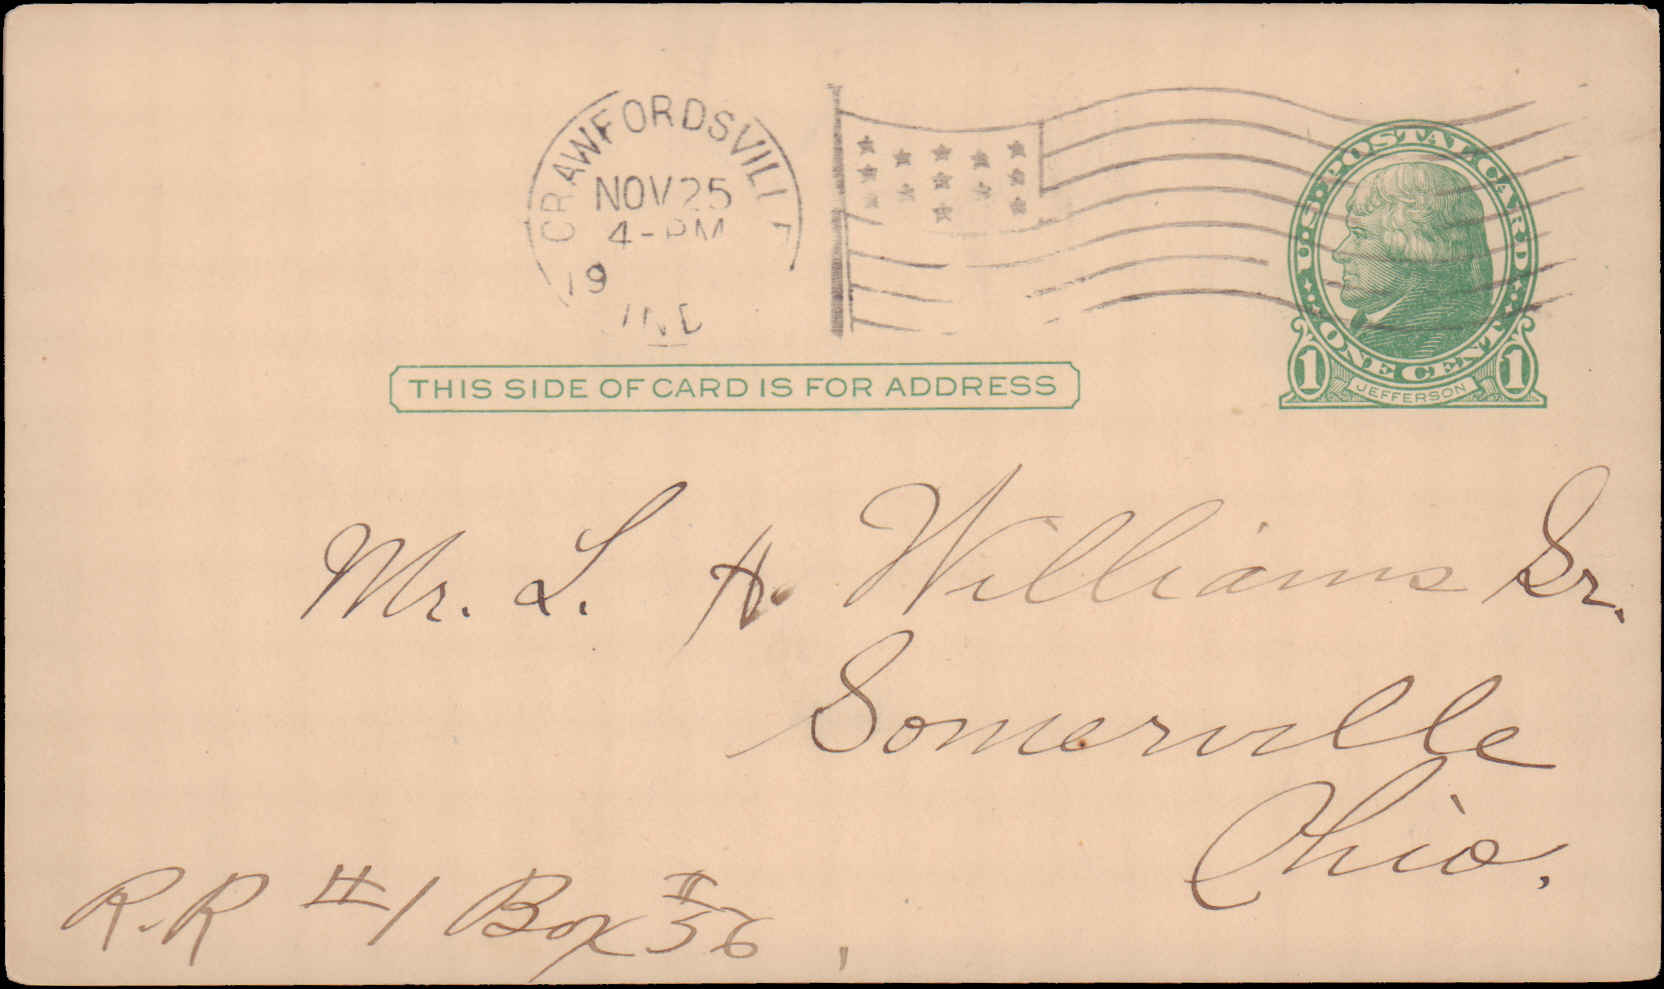 CRAWFORDSVILLE
NOV 25
4-PM
19
IND
U.S. POSTAL CARD
ONE CENT
1 JEFFERSON 1
THIS SIDE OF CARD IS FOR ADDRESS
Mr. L. H. Williams Sr.
Somerville
Ohio.
R.R #1 Box #56